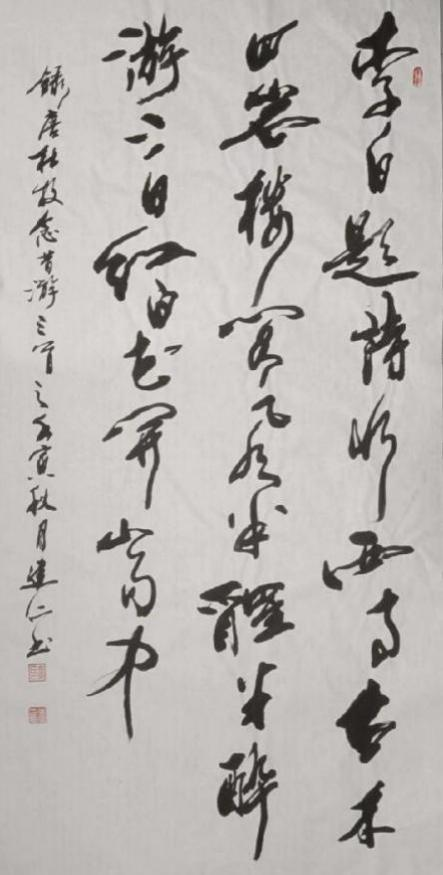 李白題詩水西寺古木
回岩樓閣风半醒半醉
游三日紅白花開山雨中
録唐杜牧念昔游三首之壬寅秋月建仁书